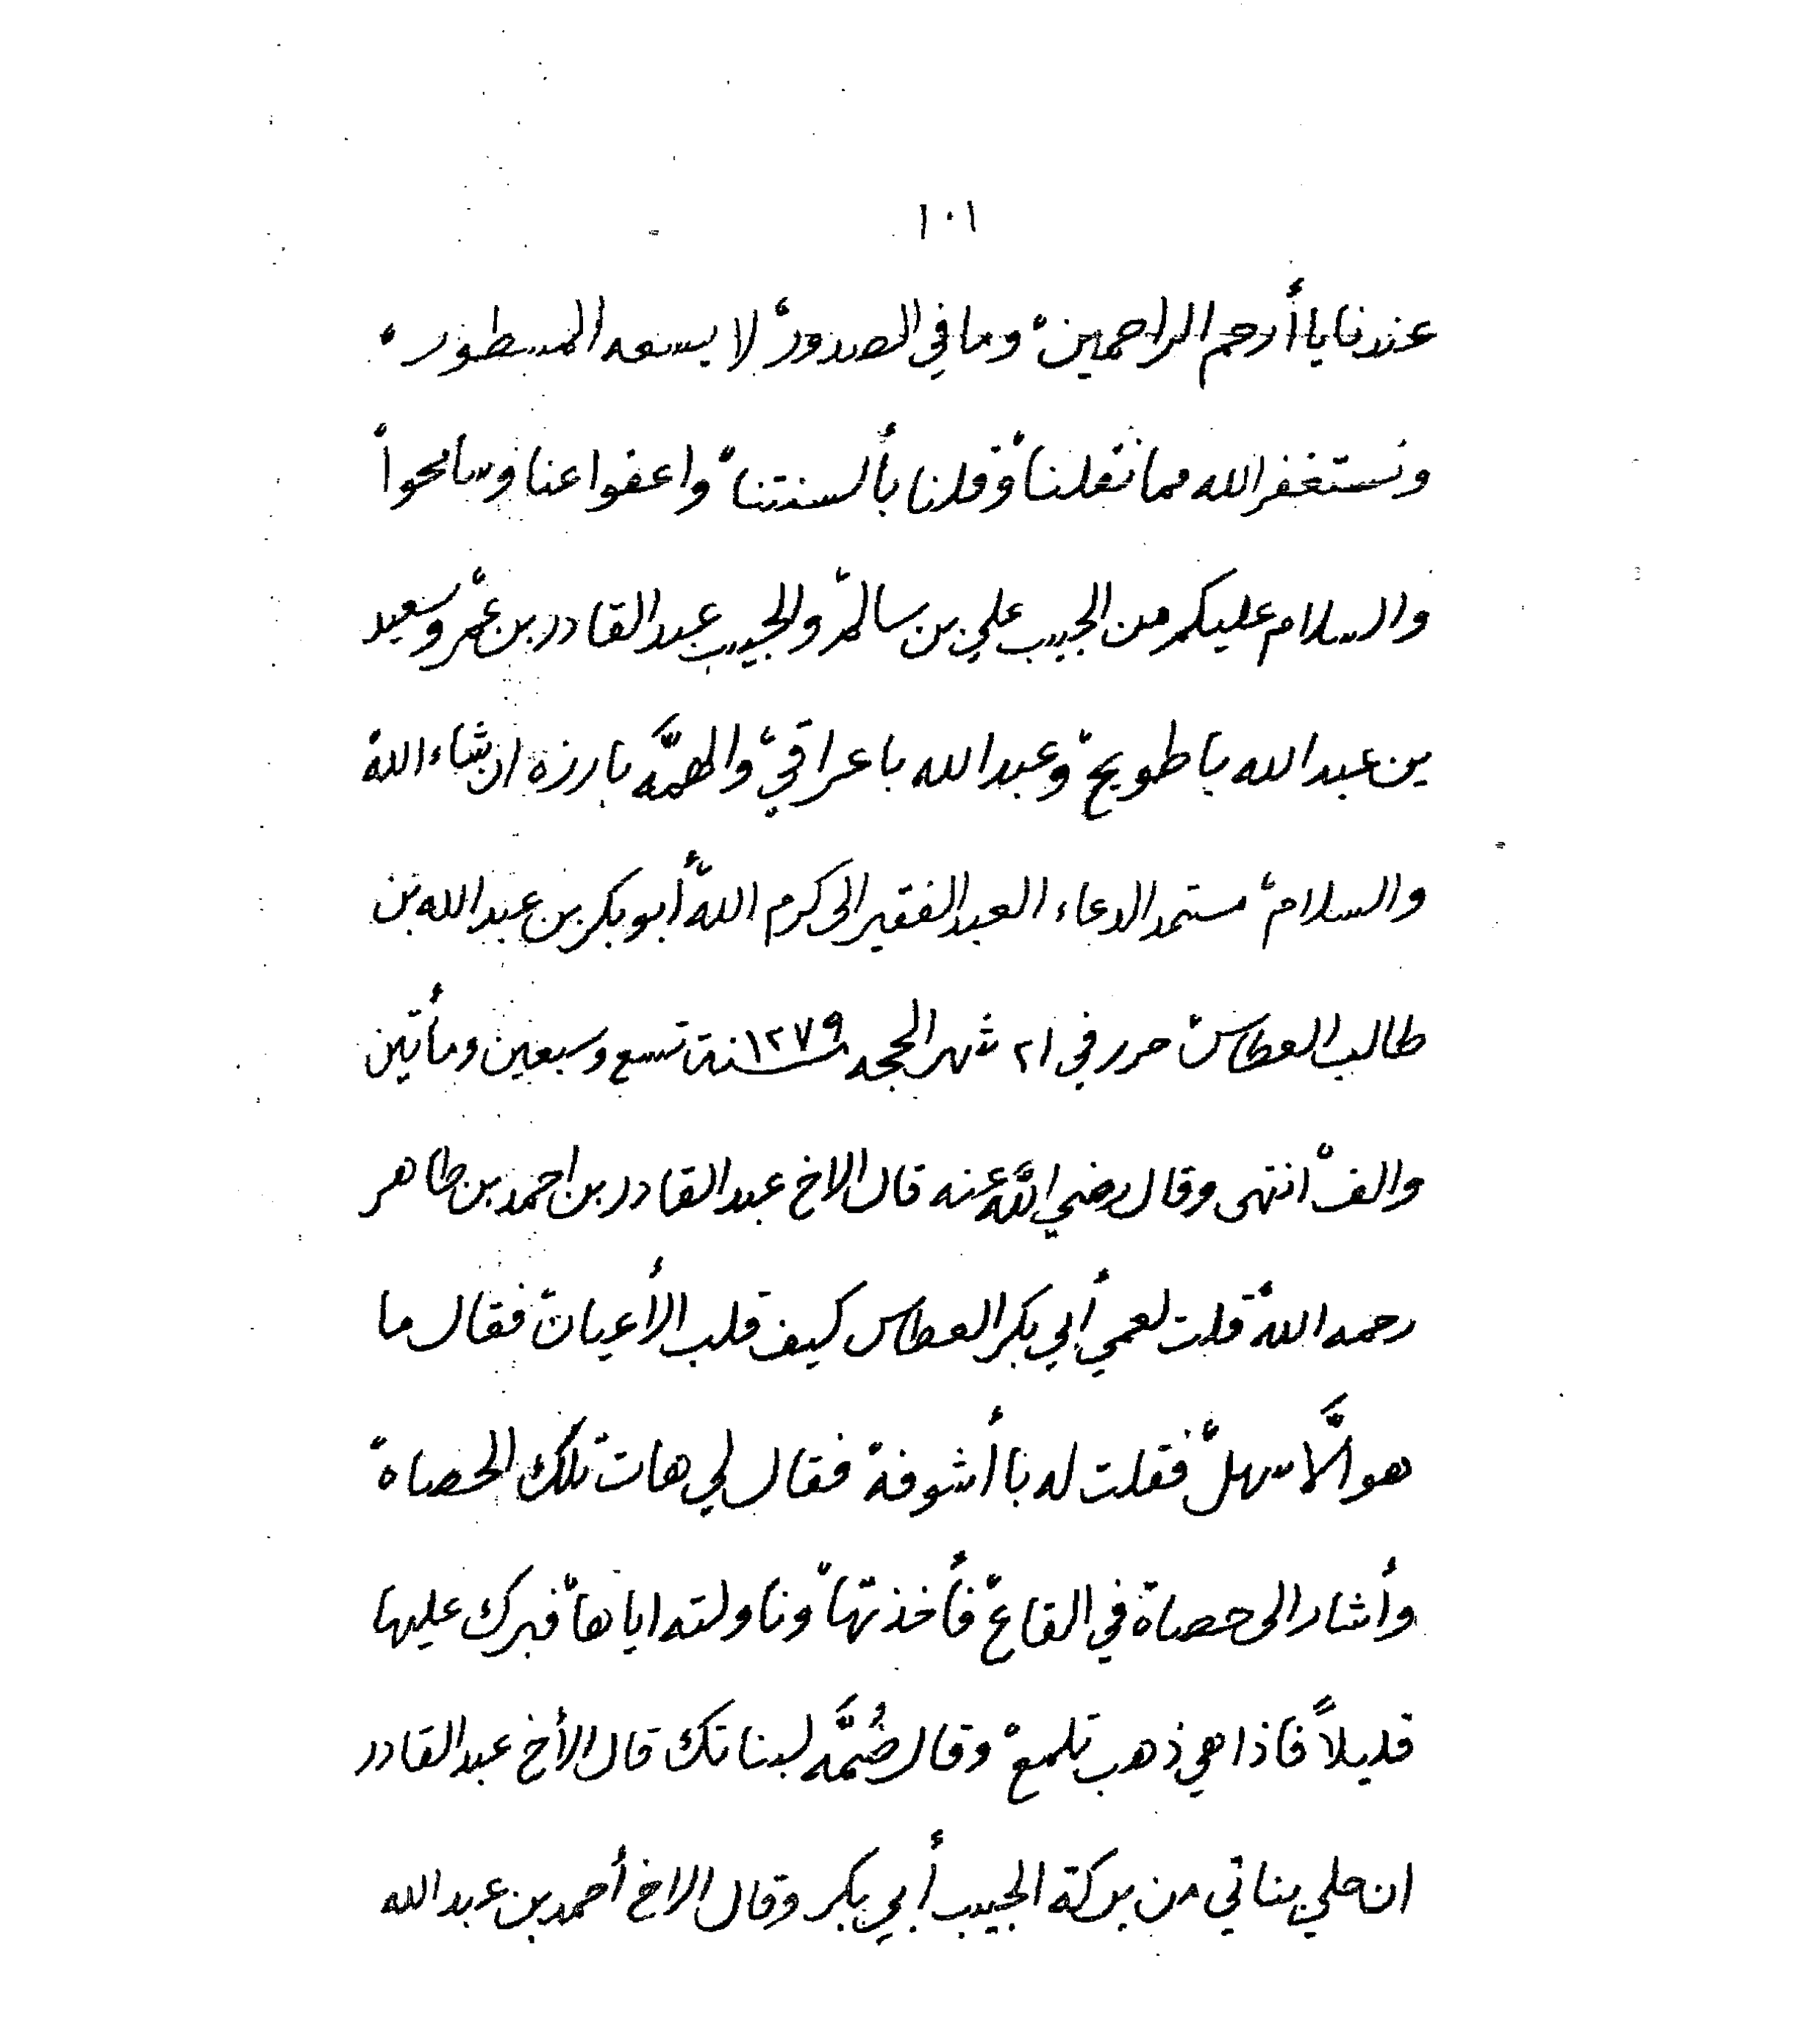 ١٠١
عندنا يا أرحم الراحمين، وما في الصدور، لا يسعه المسطور،
ونستغفر الله مما نقلنا، وقلنا بألسنتنا، واعفوا عنا وسامحوا،
والسلام عليكم من الحبيب علي بن سالم، والحبيب عبد القادر بن عمر، وسعيد
بن عبد الله باطويح، وعبد الله باعراقي، والهمَّه بارزه ان شاء الله،
والسلام، مستمد الدعاء العبد الفقير الى كرم الله، أبو بكر بن عبد الله بن
طالب العطاس، حرر في ٢١ شهر الحجه سنة ١٢٧٩ تسع وسبعين ومأتين
والف، انتهى وقال رضي الله عنه قال الاخ عبد القادر بن احمد بن طاهر
رحمه الله، قلت لعمي أبي بكر العطاس كيف قلب الأعيان، فقال ما
هو الَّا سهل، فقلت له با أشوفه، فقال لي هات تلك الحصاة،
وأشار الى حصاة في القاع، فأخذتها، وناولته اياها، فبرك عليها
قليلاً فاذا هي ذهب تلمع، وقال ضُمَّه لبناتك قال الأخ عبد القادر
ان حلي بناتي من بركة الحبيب أبي بكر وقال الاخ أحمد بن عبد الله